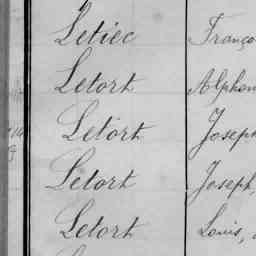 Letiec Franço
Letort Alphon
Letort Joseph
Letort Joseph,
Letort Louis,